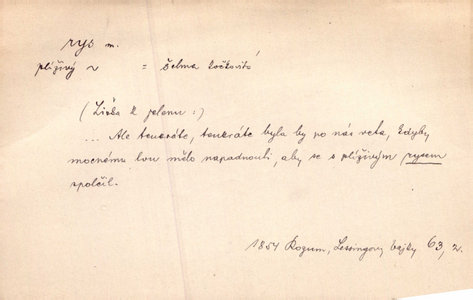 rys m.
plíživý ~ = šelma kočkovitá
(Liška k jelenu:)
... Ale tenkráte, tenkráte byla by po nás veta, kdyby
mocnému lvu mělo napadnouti, aby se s plíživým rysem
spolčil.
1854 Rozum, Lessingovy bajky 63, 2.